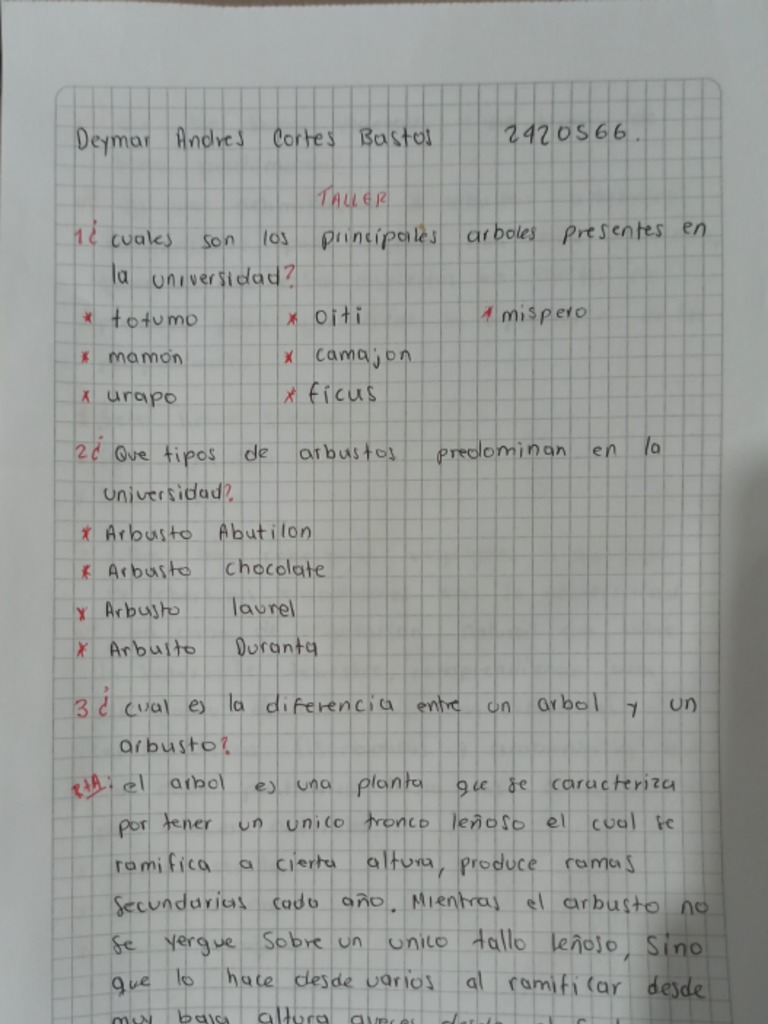 Deymar Andres Cortes Bastos 2420566.
TALLER
1¿ cuales son los principales arboles presentes en
la universidad?
* totumo * oiti * mispero
* mamón * camajon
* urapo * ficus
2¿ Que tipos de arbustos predominan en la
universidad?
* Arbusto Abutilon
* Arbusto chocolate
* Arbusto laurel
* Arbusto Duranta
3¿ cual es la diferencia entre un arbol y un
arbusto?
RtA: el arbol es una planta que se caracteriza
por tener un unico tronco leñoso el cual se
ramifica a cierta altura, produce ramas
secundarias cada año. Mientras el arbusto no
se yergue sobre un unico tallo leñoso, sino
que lo hace desde varios al ramificar desde
muy baja altura